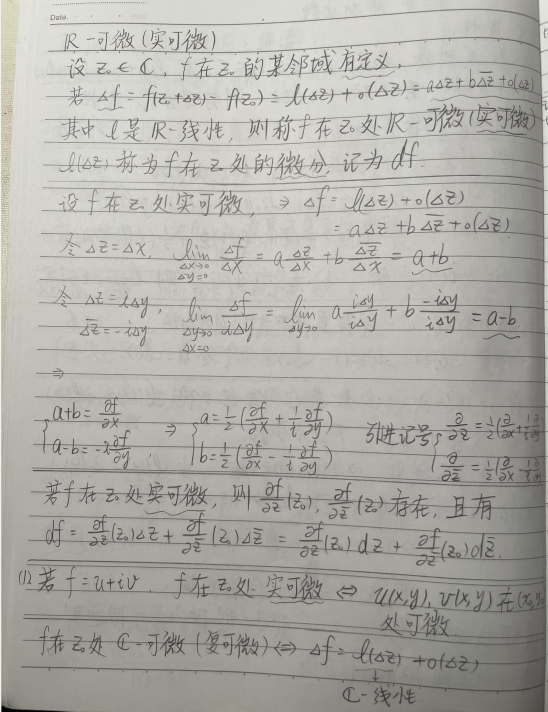 Date.
ℝ-可微(实可微)
设 z₀∈ℂ, f在z₀的某邻域有定义,
若 Δf = f(z₀+Δz) - f(z₀) = l(Δz) + o(Δz) = aΔz + bΔz̄ + o(Δz)
其中l是ℝ-线性, 则称f在z₀处ℝ-可微(实可微)
l(Δz)称为f在z₀处的微分, 记为df.
设f在z₀处实可微, ⇒ Δf = l(Δz) + o(Δz)
= aΔz + bΔz̄ + o(Δz)
令Δz=Δx, lim_{Δx→0, Δy=0} Δf/Δx = a Δz/Δx + b Δz̄/Δx = a+b
令Δz=iΔy, Δz̄=-iΔy, lim_{Δy→0, Δx=0} Δf/iΔy = lim_{Δy→0} a iΔy/iΔy + b -iΔy/iΔy = a-b
⇒
{ a+b = ∂f/∂x ⇒ { a = 1/2(∂f/∂x + 1/i ∂f/∂y) 引进记号 { ∂/∂z = 1/2(∂/∂x + 1/i ∂/∂y
a-b = -i ∂f/∂y. b = 1/2(∂f/∂x - 1/i ∂f/∂y) ∂/∂z̄ = 1/2(∂/∂x - 1/i ∂/∂y
若f在z₀处实可微, 则 ∂f/∂z(z₀), ∂f/∂z̄(z₀)存在, 且有
df = ∂f/∂z(z₀)Δz + ∂f/∂z̄(z₀)Δz̄ = ∂f/∂z(z₀)dz + ∂f/∂z̄(z₀)dz̄.
(1) 若f=u+iv. f在z₀处 实可微 ⇔ u(x,y), v(x,y)在(x₀,y₀
处可微.
f在z₀处 ℂ-可微(复可微) ⇔ Δf = l(Δz) + o(Δz)
↓
ℂ-线性